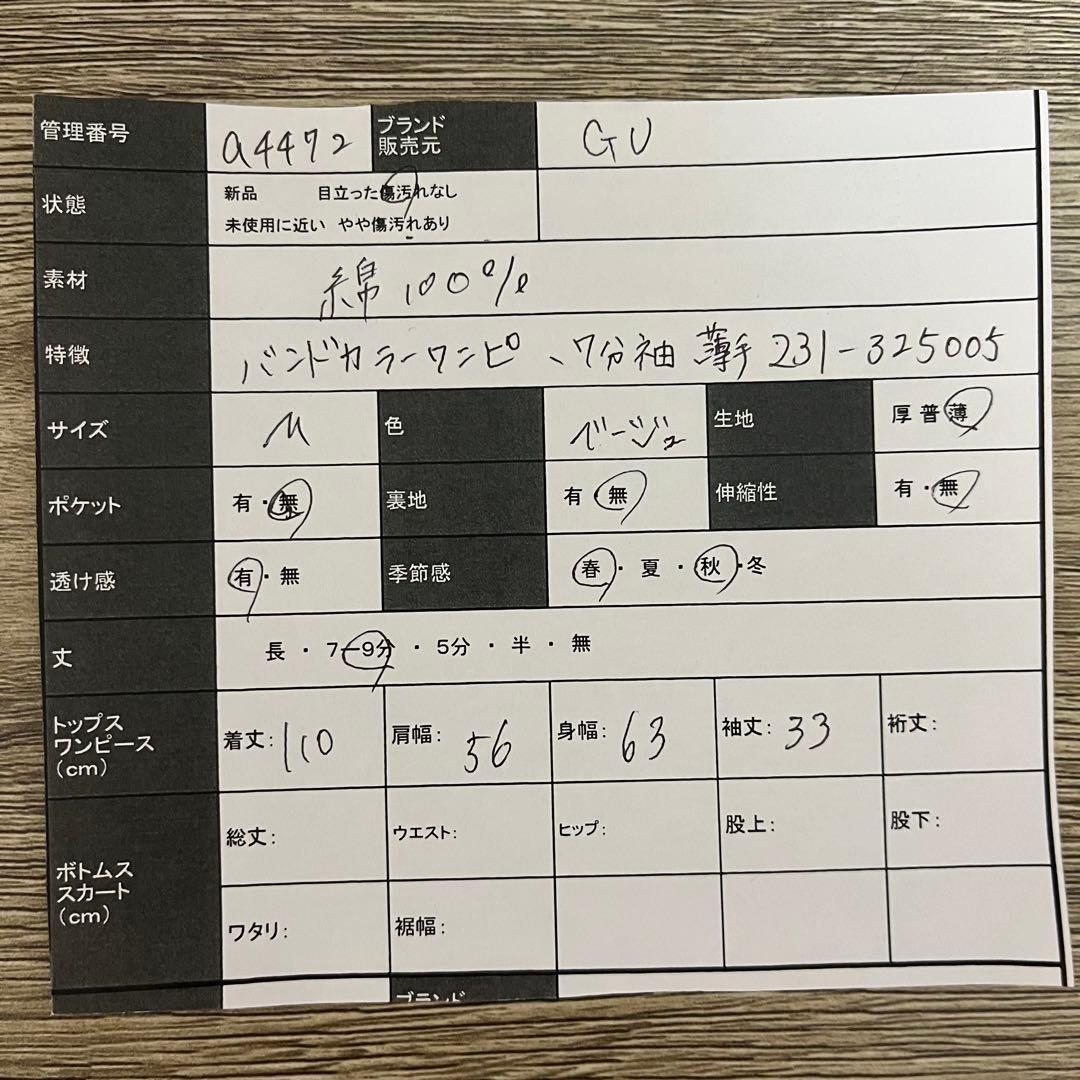 管理番号 a4472 ブランド 販売元 GU
状態 新品 目立った傷汚れなし
未使用に近い やや傷汚れあり
素材 綿100%
特徴 バンドカラーワンピ、7分袖 薄手 231-325005
サイズ M 色 ベージュ 生地 厚 普 薄
ポケット 有・無 裏地 有・無 伸縮性 有・無
透け感 有・無 季節感 春・夏・秋・冬
丈 長・7-9分・5分・半・無
トップス ワンピース (cm) 着丈:110 肩幅:56 身幅:63 袖丈:33 裄丈:
ボトムス スカート (cm) 総丈: ウエスト: ヒップ: 股上: 股下:
ワタリ: 裾幅:
ブランド